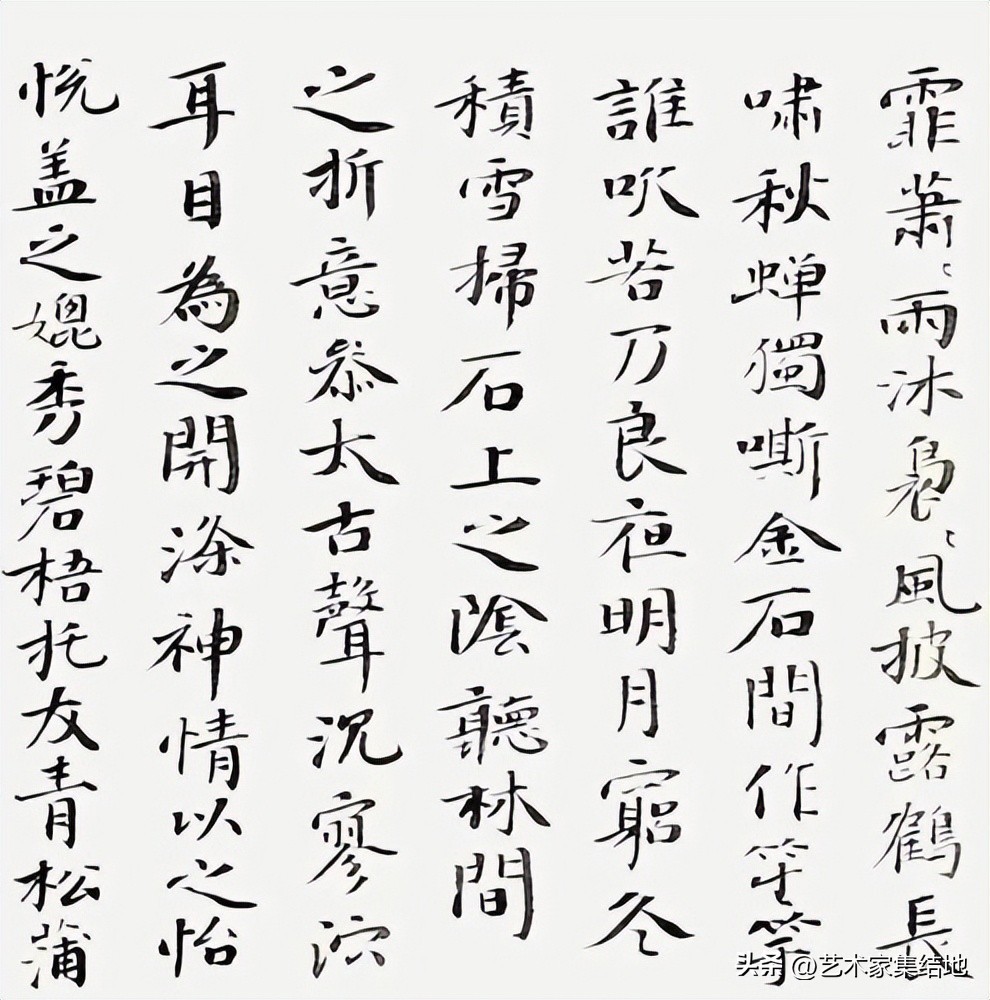 霏蕭〻雨沐裊〻風披露鶴長
嘯秋蟬獨嘶金石間作竽籟
誰吹若乃良夜明月窮冬
積雪掃石上之陰聽林間
之折意參太古聲沉寥泬
耳目為之開滌神情以之怡
悅盖之媲秀碧梧托友青松蒲
头条 @艺术家集结地